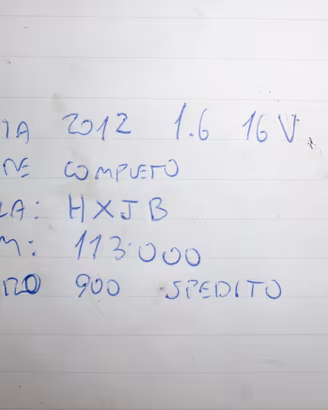 IA 2012 1.6 16V
NE COMPLETO
LA: HXJB
M: 113.000
RO 900 SPEDITO